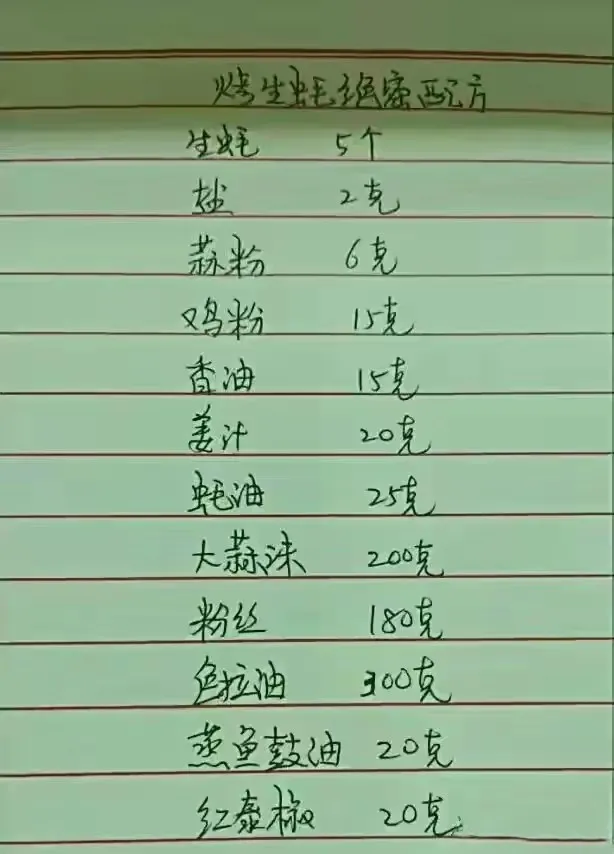 烤生蚝绝密配方
生蚝 5个
盐 2克
蒜粉 6克
鸡粉 15克
香油 15克
姜汁 20克
蚝油 25克
大蒜沫 200克
粉丝 180克
色拉油 300克
蒸鱼鼓油 20克
红泰椒 20克